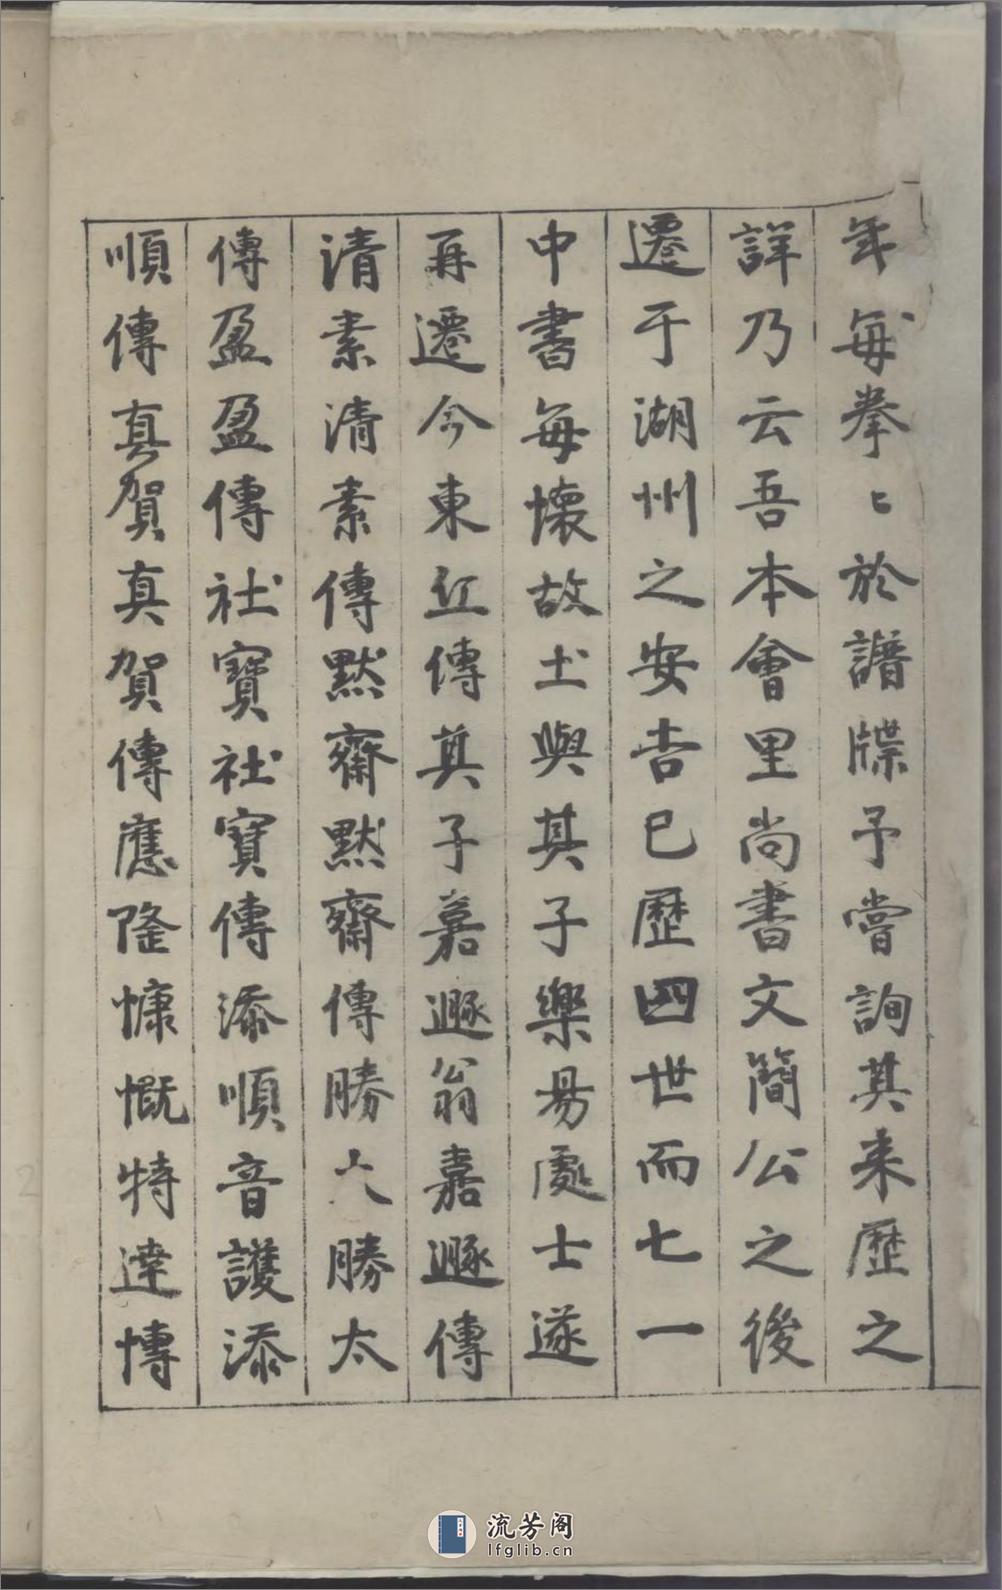 年每拳〻於譜牒予嘗詢其来歷之
詳乃云吾本會里尚書文簡公之後
遷于湖州之安吉已歷四世而七一
中書每懷故土與其子樂易處士遂
再遷今東江傳其子嘉遯翁嘉遯傳
清素清素傳默齋默齋傳勝大勝太
傳盈盈傳社寶社寶傳添順音護添
順傳真賀真賀傳應隆慷慨特達博
流芳阁
lfglib.cn